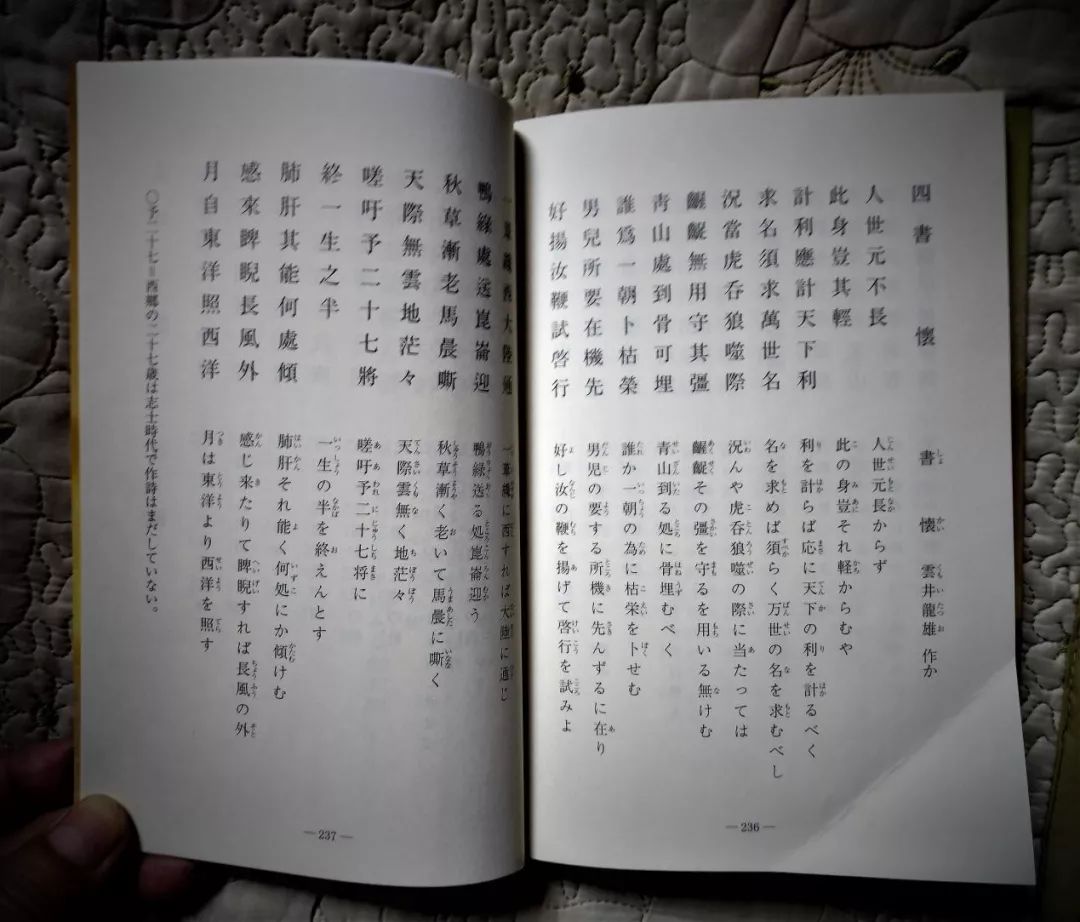 四書懷
人世元不長
此身豈其輕
計利應計天下利
求名須求萬世名
況當虎呑狼噬際
齷齪無用守其彊
靑山處到骨可埋
誰爲一朝卜枯榮
男兒所要在機先
好揚汝鞭試啓行
書懐 雲井龍雄 作か
人世元長からず
此の身豈それ軽からむや
利を計らば応に天下の利を計るべく
名を求めば須らく万世の名を求むべし
況んや虎呑狼噬の際に当たっては
齷齪その彊を守るを用いる無けむ
青山到る処に骨埋むべく
誰か一朝の為に枯栄を卜せむ
男児の要する所機に先んずるに在り
好し汝の鞭を揚げて啓行を試みよ
—236—
一西大陸通
鴨綠處送崑崙迎
秋草漸老馬晨嘶
天際無雲地茫々
嗟吁予二十七將
終一生之半
肺肝其能何處傾
感來睥睨長風外
月自東洋照西洋
一に西すれば大陸に通じ
鴨緑送る処崑崙迎う
秋草漸く老いて馬晨に嘶く
天際雲無く地茫々
嗟吁予二十七将に
一生の半を終えんとす
肺肝それ能く何処にか傾けむ
感じ来たりて睥睨すれば長風の外
月は東洋より西洋を照す
○予二十七＝西郷の二十七歳は志士時代で作詩はまだしていない。
—237—